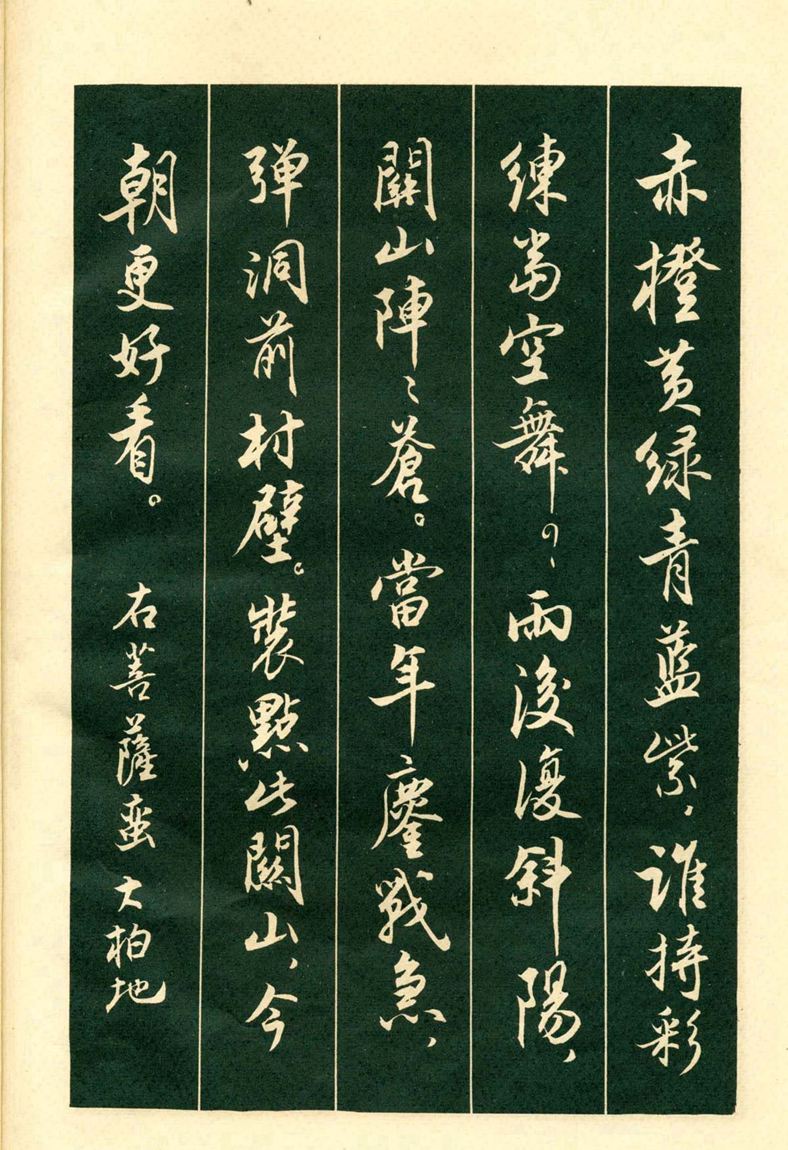 赤橙黄绿青蓝紫，谁持彩
練當空舞？雨後復斜陽，
關山陣〻蒼。當年鏖戰急，
弹洞前村壁。裝點此關山，今
朝更好看。 右菩薩蛮 大柏地